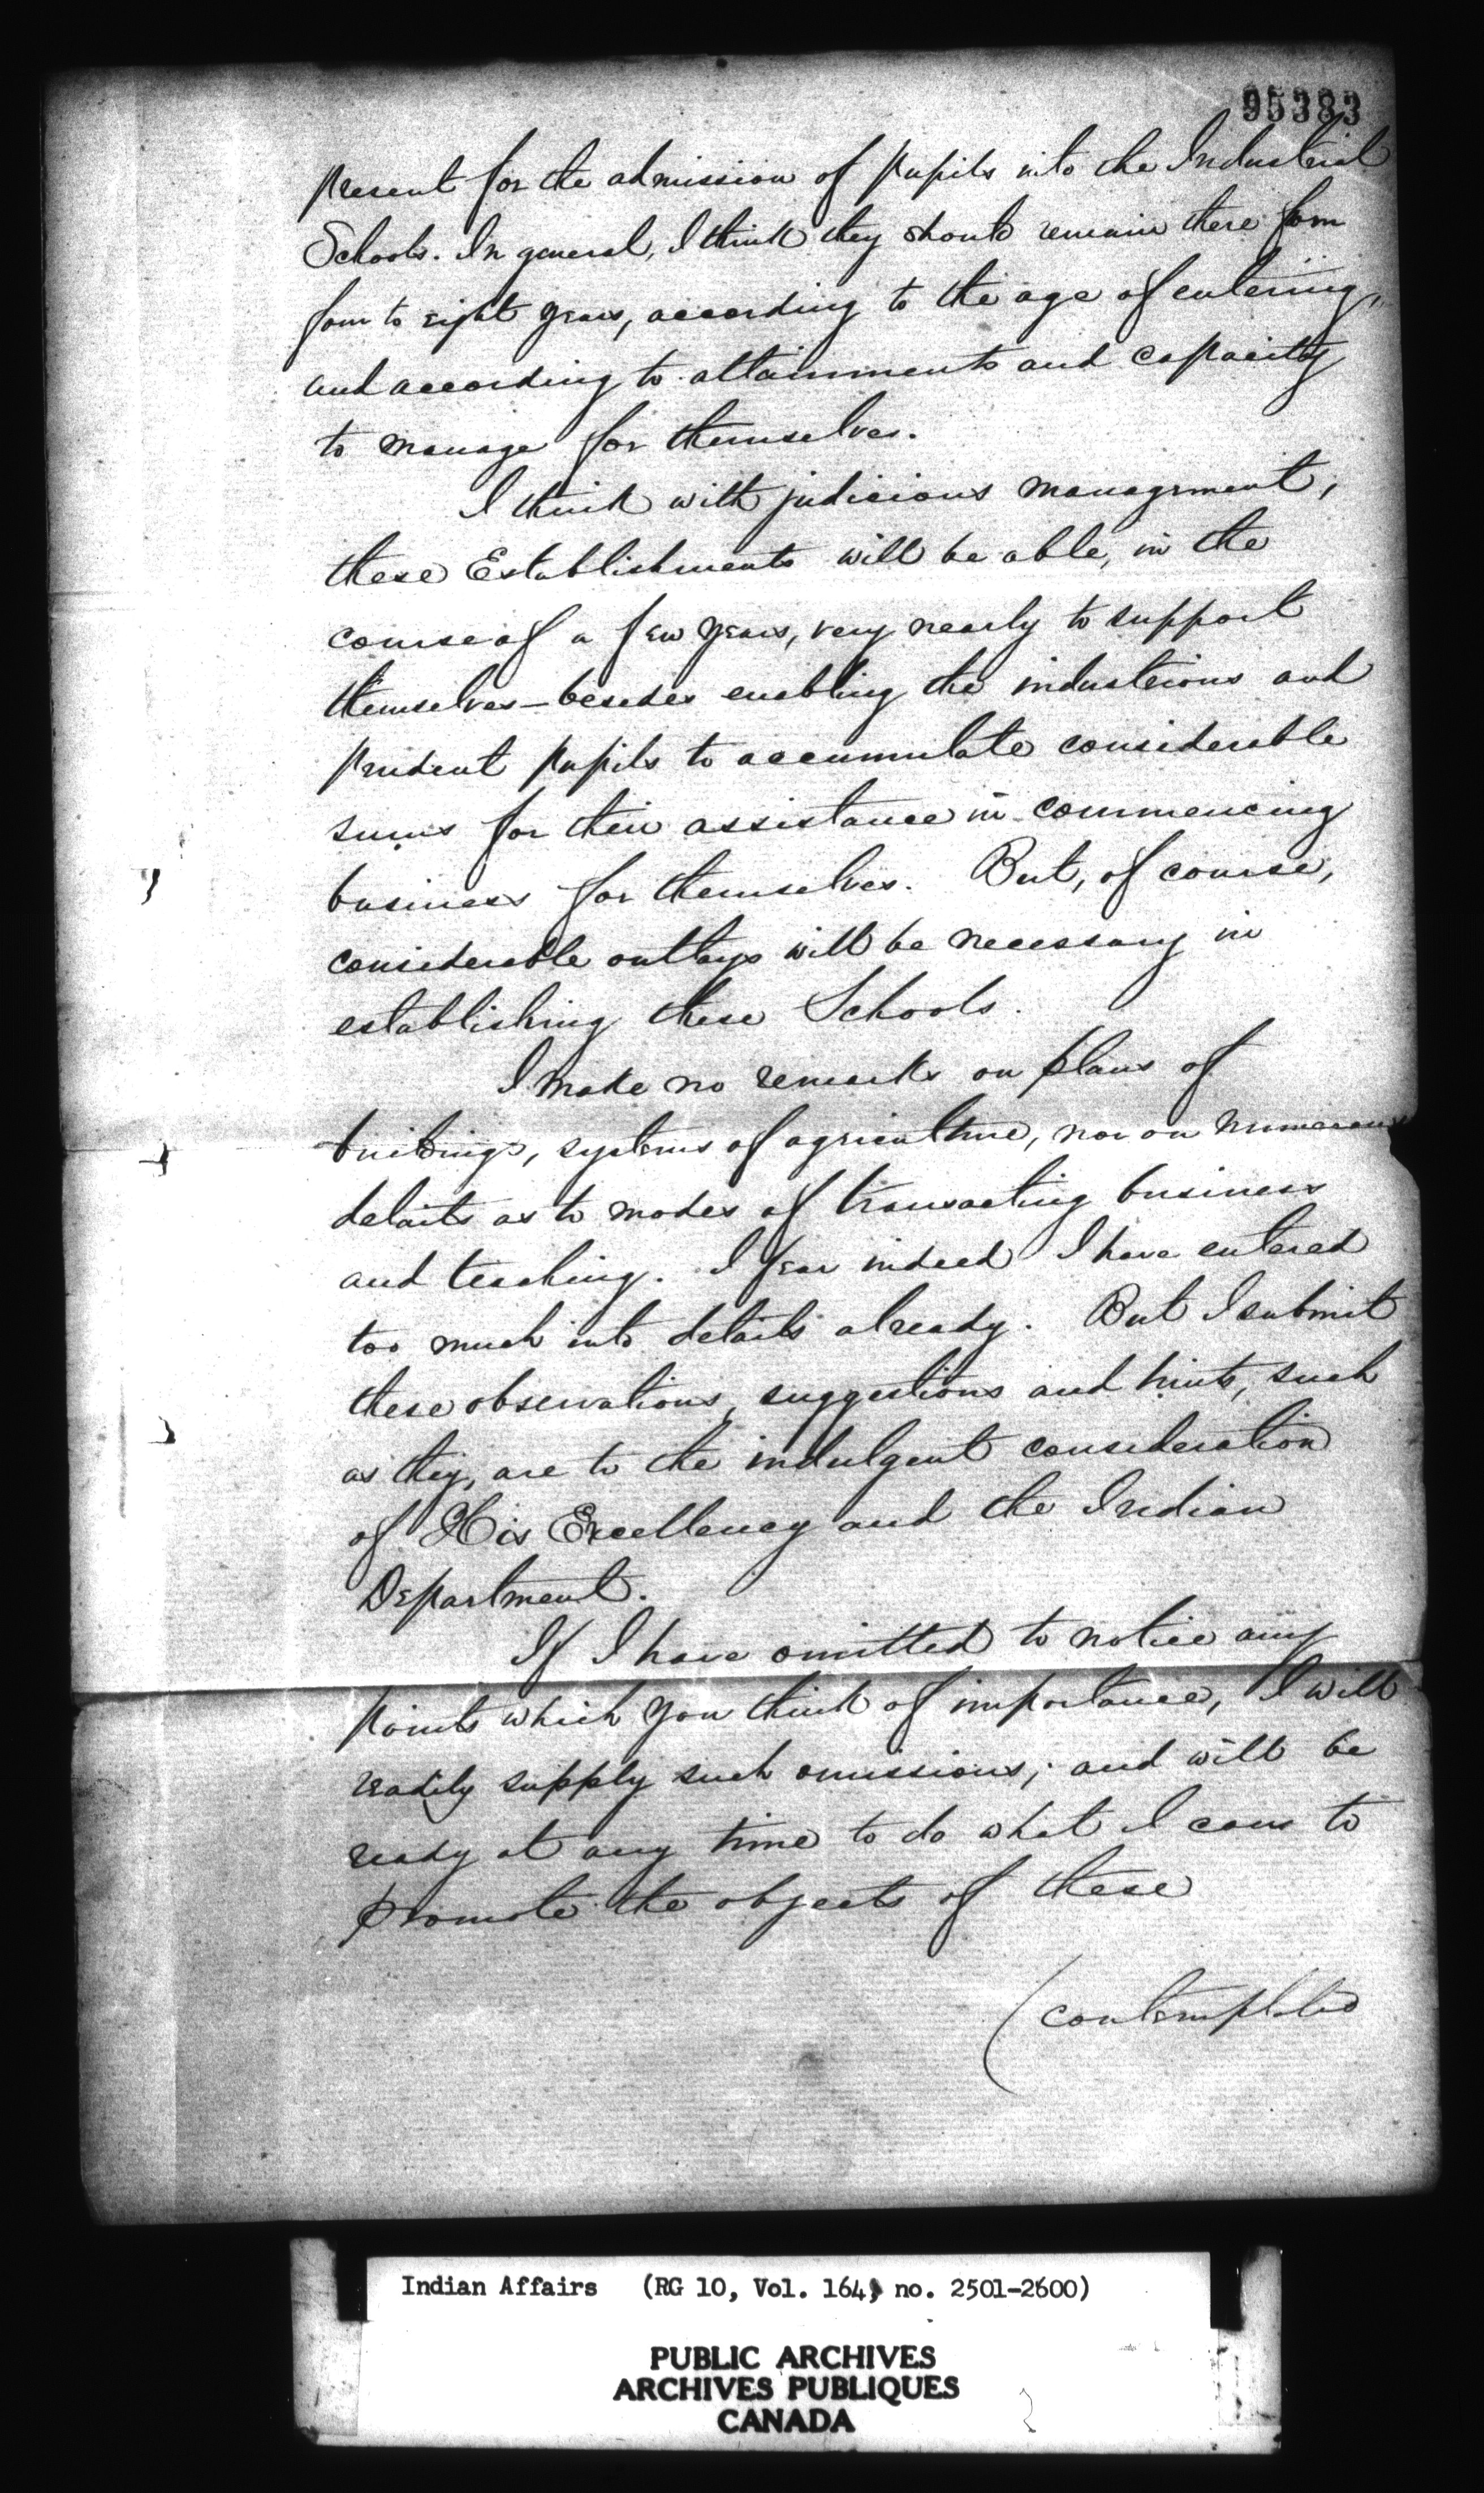 95383
present for the admission of pupils into the Industrial
Schools. In general, I think they should remain there from
four to eight years, according to the age of entering,
and according to attainments and capacity
to manage for themselves.
I think with judicious management,
these Establishments will be able, in the
course of a few years, very nearly to support
themselves – besides enabling the industrious and
prudent pupils to accumulate considerable
sums for their assistance in commencing
business for themselves. But, of course,
considerable outlays will be necessary in
establishing these Schools.
I make no remarks on plans of
buildings, systems of agriculture, nor on numerous
details as to modes of transacting business
and teaching. I fear indeed I have entered
too much into details already. But I submit
these observations, suggestions and hints, such
as they, are to the indulgent consideration
of His Excellency and the Indian
Department.
If I have omitted to notice any
points which you think of importance, I will
readily supply such omissions; and will be
ready at any time to do what I can to
promote the objects of these
(contemplated
Indian Affairs (RG 10, Vol. 164, no. 2501-2600)
PUBLIC ARCHIVES
ARCHIVES PUBLIQUES
CANADA